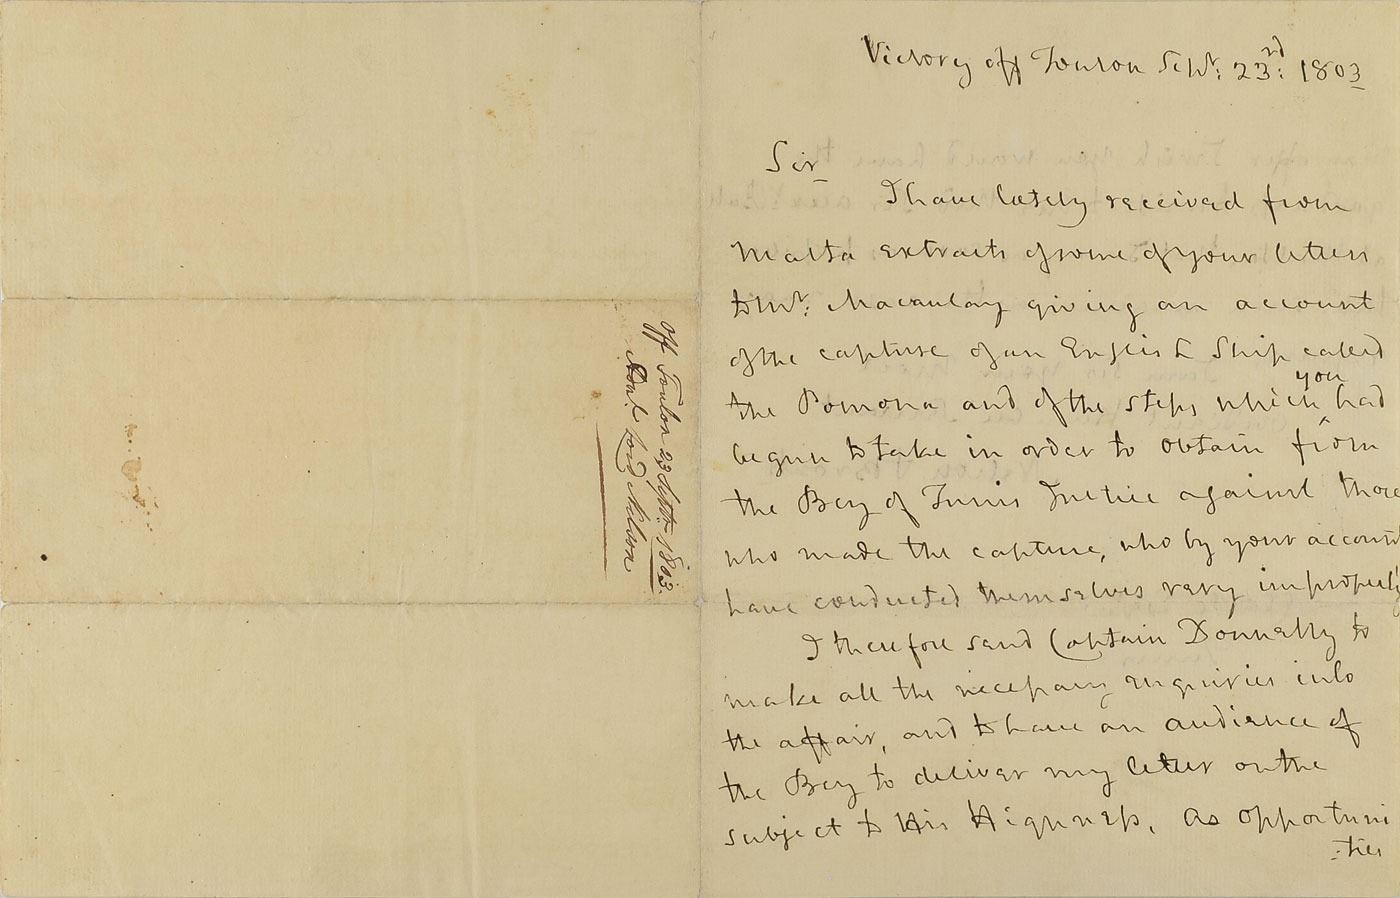 Off Toulon 23 Septr. 1803.
Adml. Lord Nelson
Victory off Toulon Sepr: 23rd: 1803
Sir
I have lately received from
Malta extracts of some of your letters
to Mr: Macaulay giving an account
of the capture of an English Ship called
the Pomona and of the steps which you had
begun to take in order to obtain from
the Bey of Tunis Justice against those
who made the capture, who by your account
have conducted themselves very improperly
I therefore send Captain Donnelly to
make all the necessary enquiries into
the affair, and to have an audience of
the Bey to deliver my letter on the
subject to His Highness, as opportuni
:ties